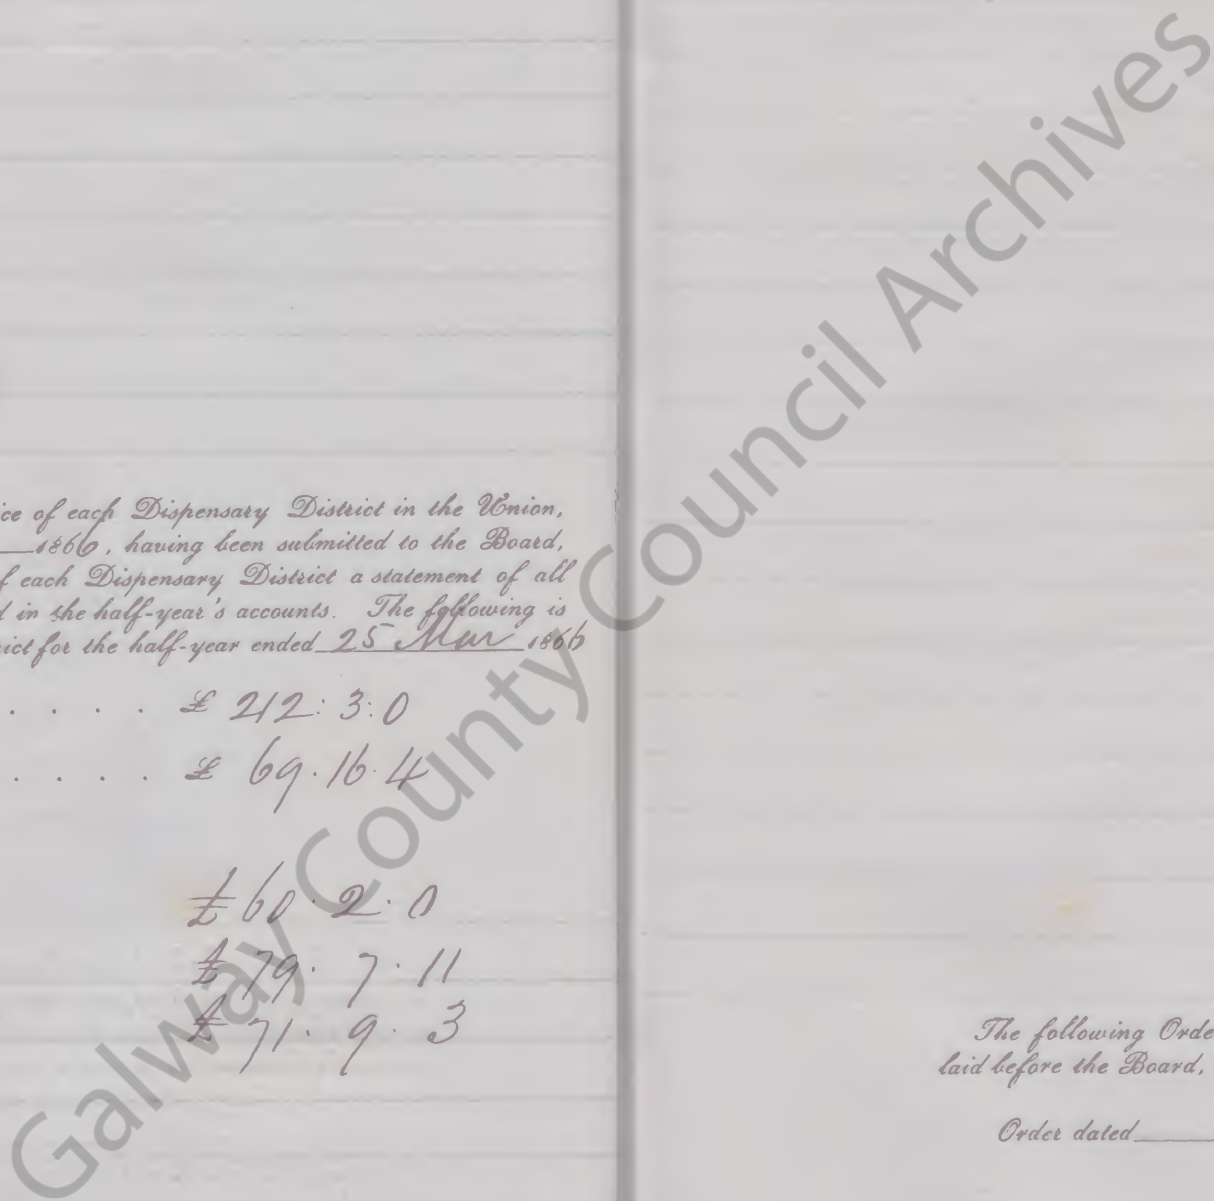 ice of each Dispensary District in the Union,
1866, having been submitted to the Board,
f each Dispensary District a statement of all
d in the half-year's accounts. The following is
rict for the half-year ended 25 Mar 1866
. . . . £ 212 : 3 : 0
. . . . £ 69 . 16 . 4
£ 60 . 2 . 0
£ 79 . 7 . 11
£ 71 . 9 . 3
The following Orde
laid before the Board,
Order dated
Galway County Council Archives